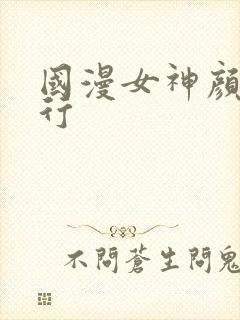 國漫女神顏
行
不問蒼生問鬼